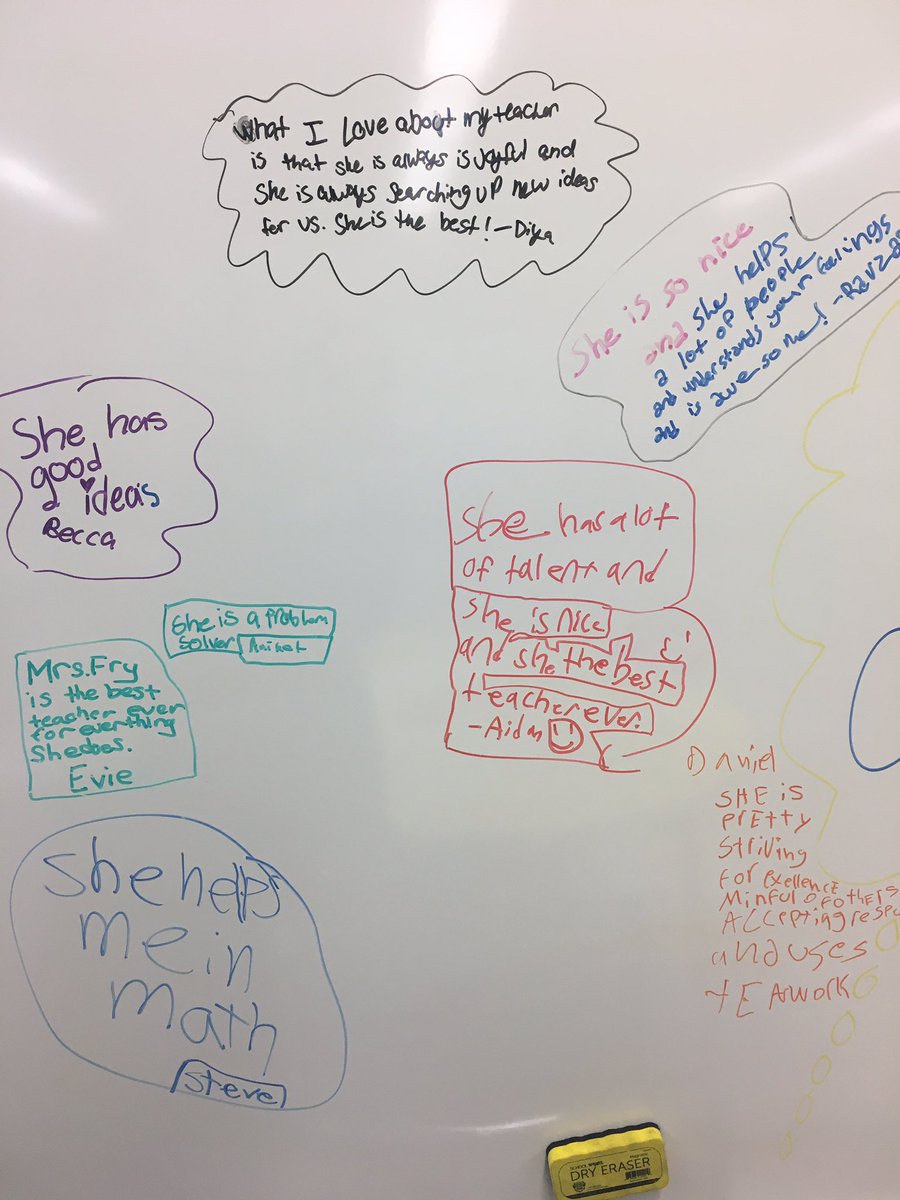 What I Love about my teacher
is that she is always is joyful and
she is always searching up new ideas
for us. She is the best! - Diya
She is so nice
and she helps
a lot of people
and understands your feelings
and is awesome! -
She has
good
ideas
Becca
she has a lot
of talent and
she is nice
and she the best
teacher ever.
- Aidan
she is a problem
solver
Mrs. Fry
is the best
teacher ever
for everthing
She does.
Evie
Daniel
SHE is
pretty
striving
for Exellence
Minful oF others
Accepting respec
and uses
tEAmwork
she helps
me in
math
Steve
DRY ERASER